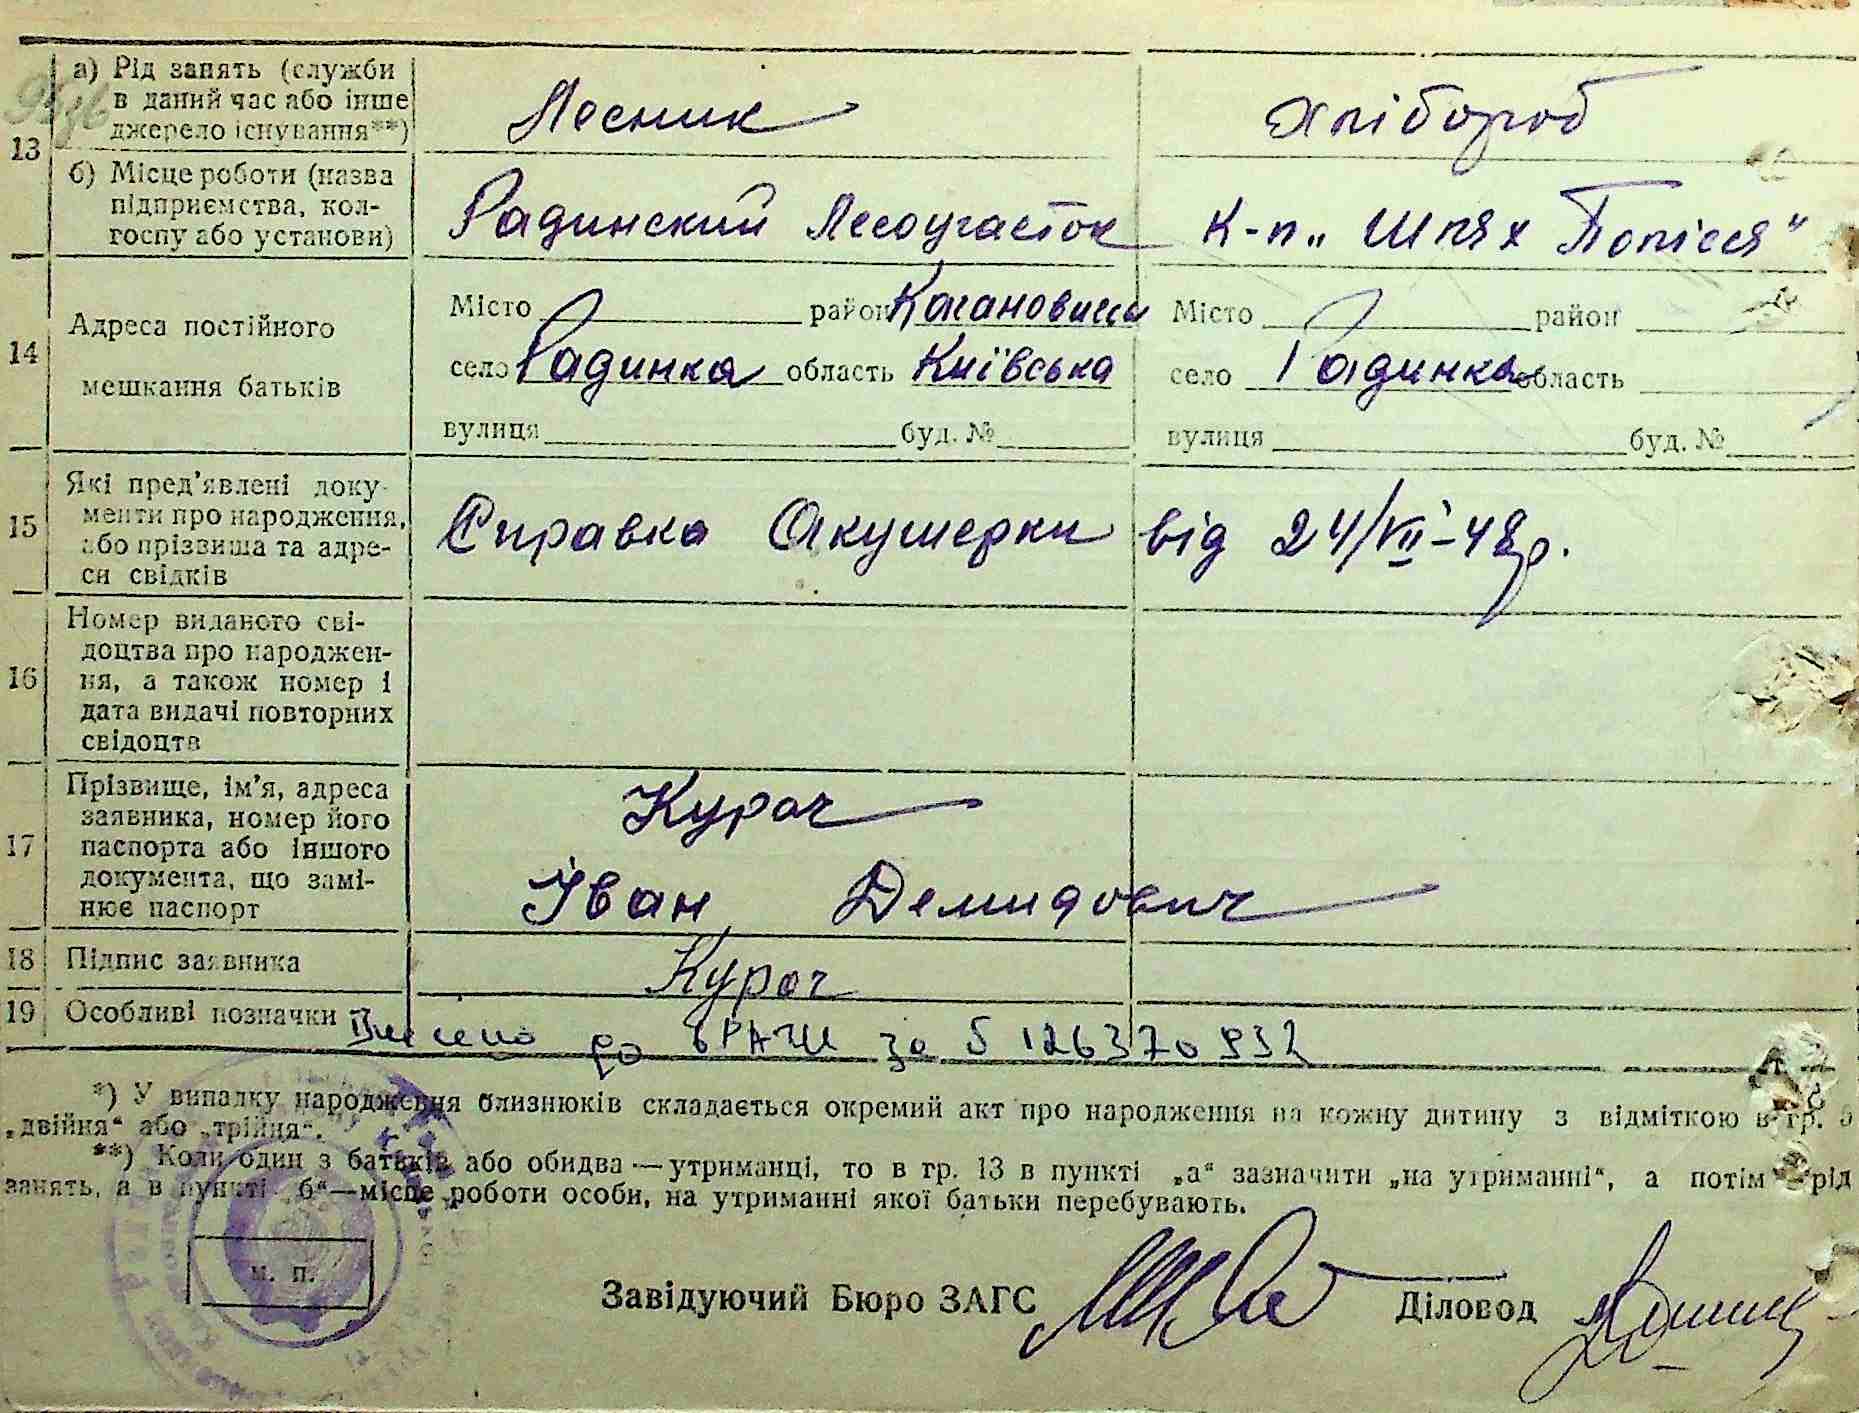 13
а) Рід занять (служби
в даний час або інше
джерело існування**)
Лесник
Хлібороб
б) Місце роботи (назва
підприємства, кол-
госпу або установи)
Радинский Лесоучасток
К-п „Шлях Полісся"
14
Адреса постійного
мешкання батьків
Місто район
село Радинка область Київська
вулиця буд. №
Місто район
село Радинка область
вулиця буд. №
15
Які пред'явлені доку-
менти про народження,
або прізвища та адре-
си свідків
Справка Акушерки від 24/VII-48р.
16
Номер виданого сві-
доцтва про народжен-
ня, а також номер і
дата видачі повторних
свідоцтв
17
Прізвище, ім'я, адреса
заявника, номер його
паспорта або іншого
документа, що замі-
нює паспорт
Курач
Іван Демидович
18
Підпис заявника
Курач
19
Особливі позначки
Внесено до за 5 126370932
*) У випадку народження близнюків складається окремий акт про народження на кожну дитину з відміткою в гр. 5
„двійня“ або „трійня“.
**) Коли один з батьків або обидва—утриманці, то в гр. 13 в пункті „а“ зазначити „на утриманні“, а потім рід
занять, а в пункті „б“—місце роботи особи, на утриманні якої батьки перебувають.
м. п.
Завідуючий Бюро ЗАГС
Діловод